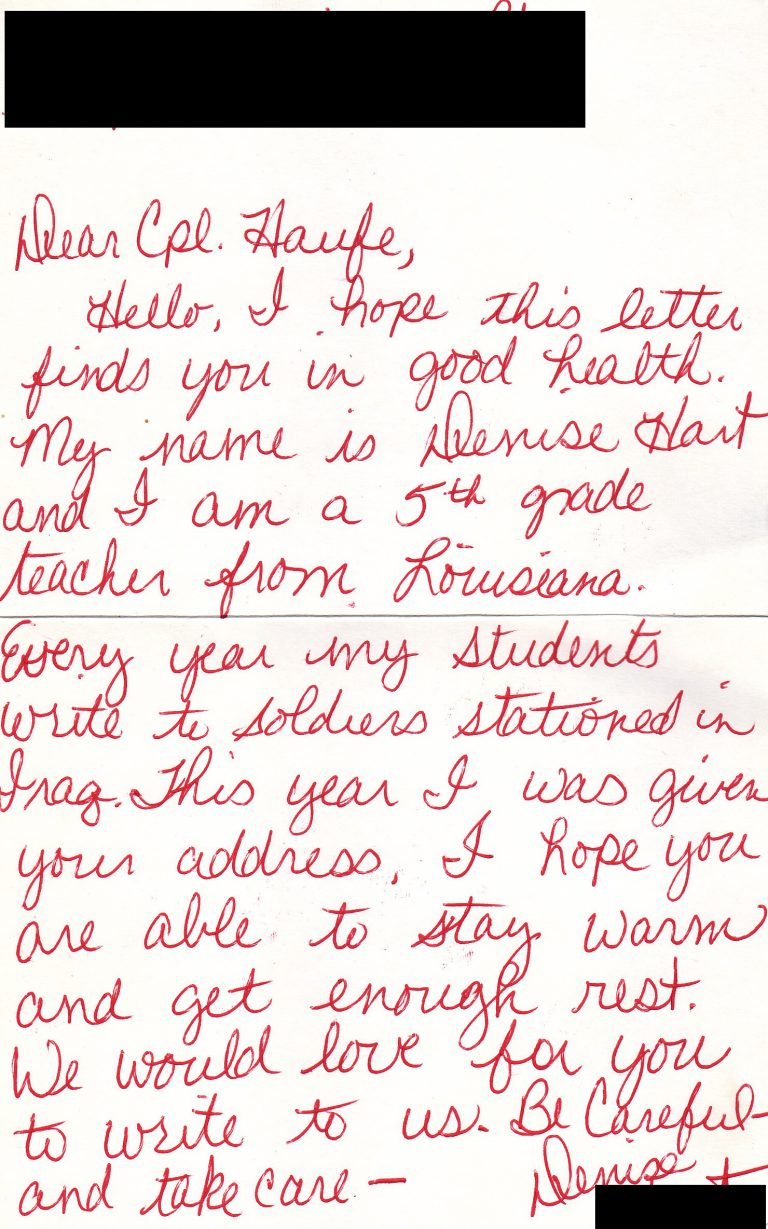 Dear Cpl. Haufe,
Hello, I hope this letter
finds you in good health.
My name is Denise Hart
and I am a 5th grade
teacher from Louisiana.
Every year my students
write to soldiers stationed in
Iraq. This year I was given
your address. I hope you
are able to stay warm
and get enough rest.
We would love for you
to write to us. Be Careful-
and take care – Denise